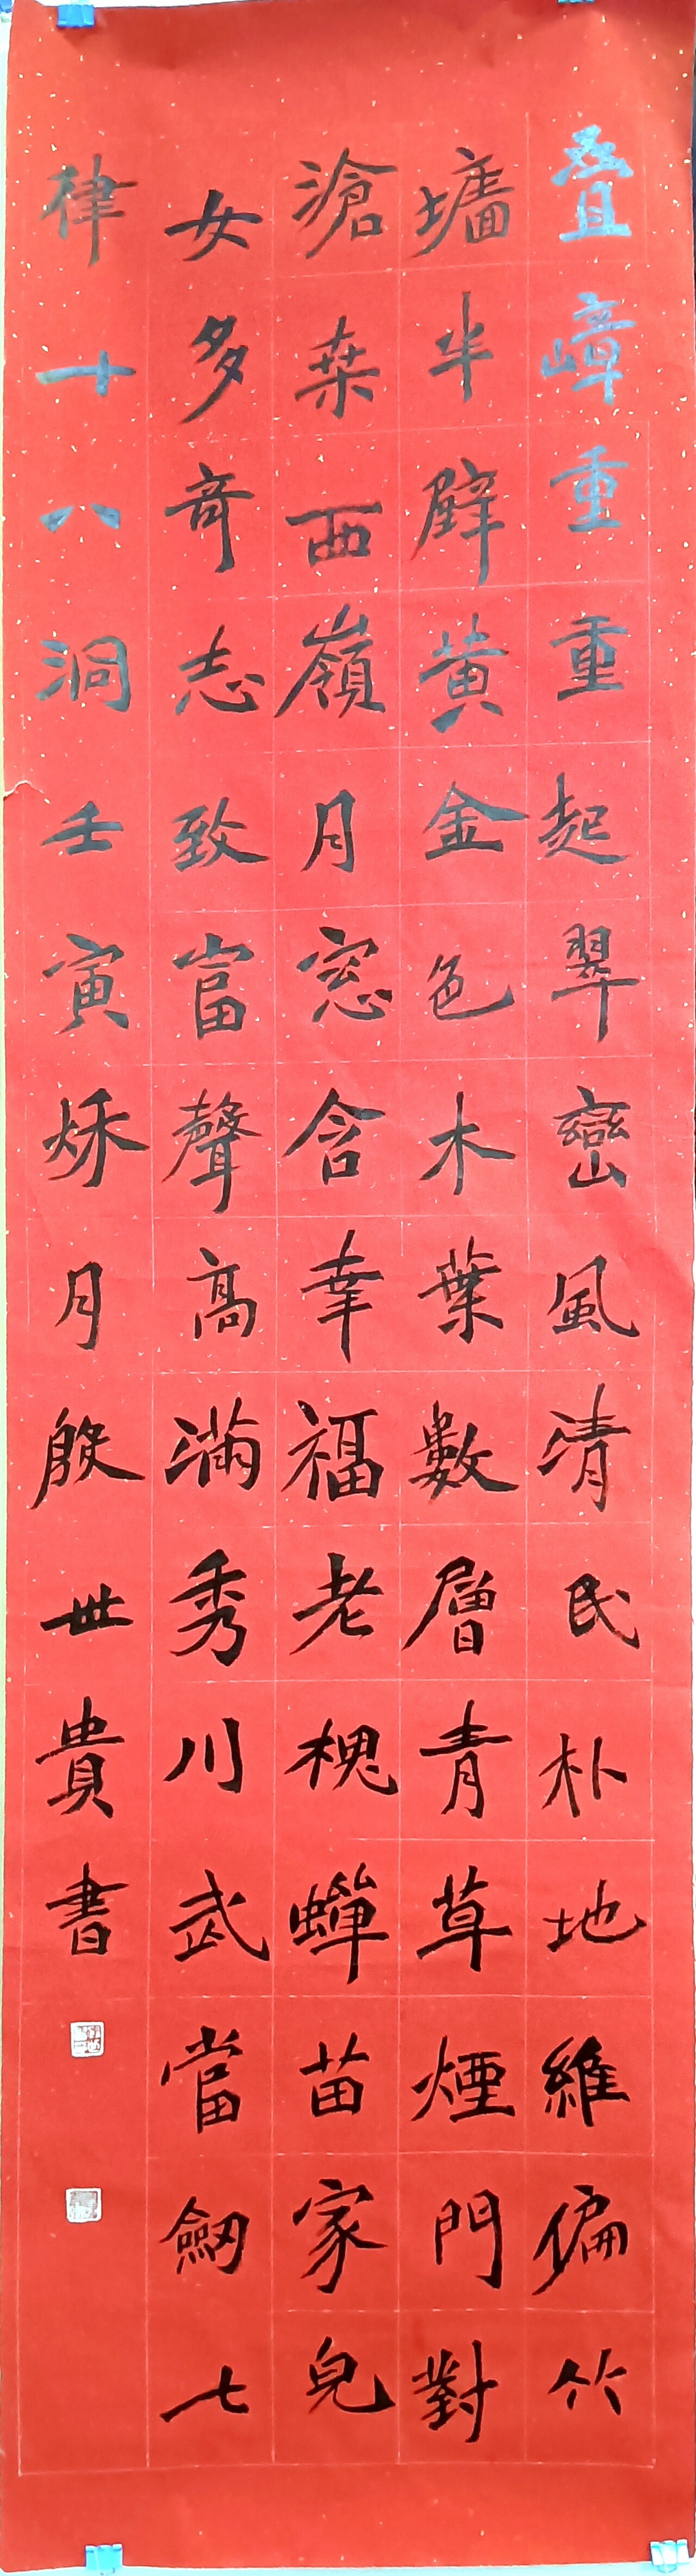 叠嶂重重起翠巒風清民朴地維偏竹
墻半壁黄金色木葉數層青草煙門對
滄桑西嶺月窓含幸福老槐蟬苗家皃
女多奇志致富聲髙滿秀川武當劒七
律十八洞壬寅秌月殷世貴書